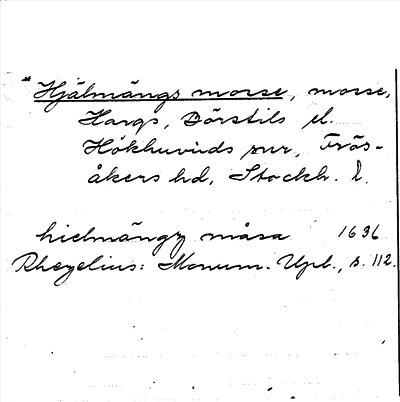 * Hjälmängs morse, morse,
Hargs, Börstils el.
Hökhuvuds snr, Frös-
åkers hd, Stockh. l.
hielmängz måsa 1636
Rhezelius: Monum. Upl., s. 112.